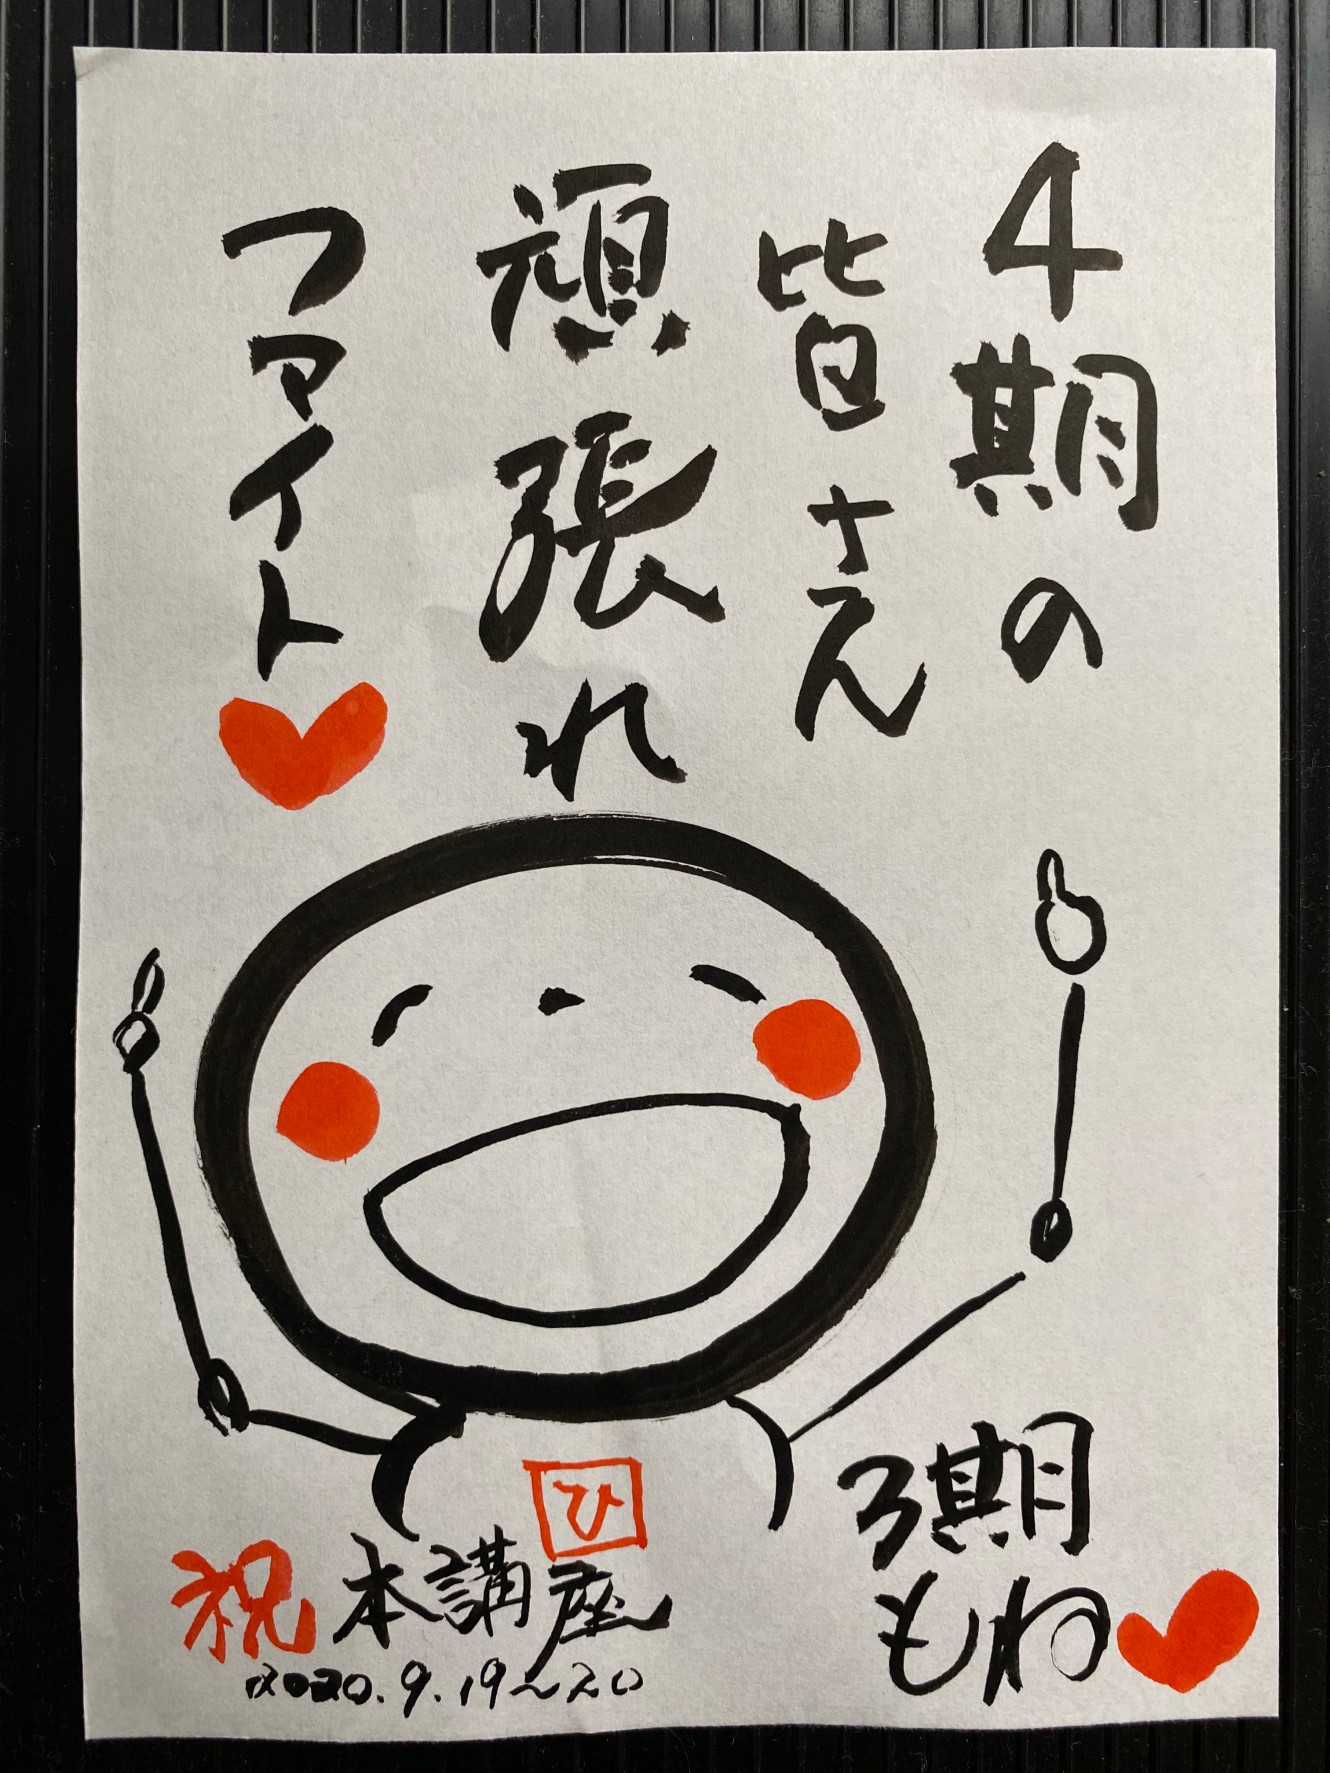 4期の
皆さん
頑張れ
ファイト
3期
もね
ひ
祝本講座
2020.9.19~20